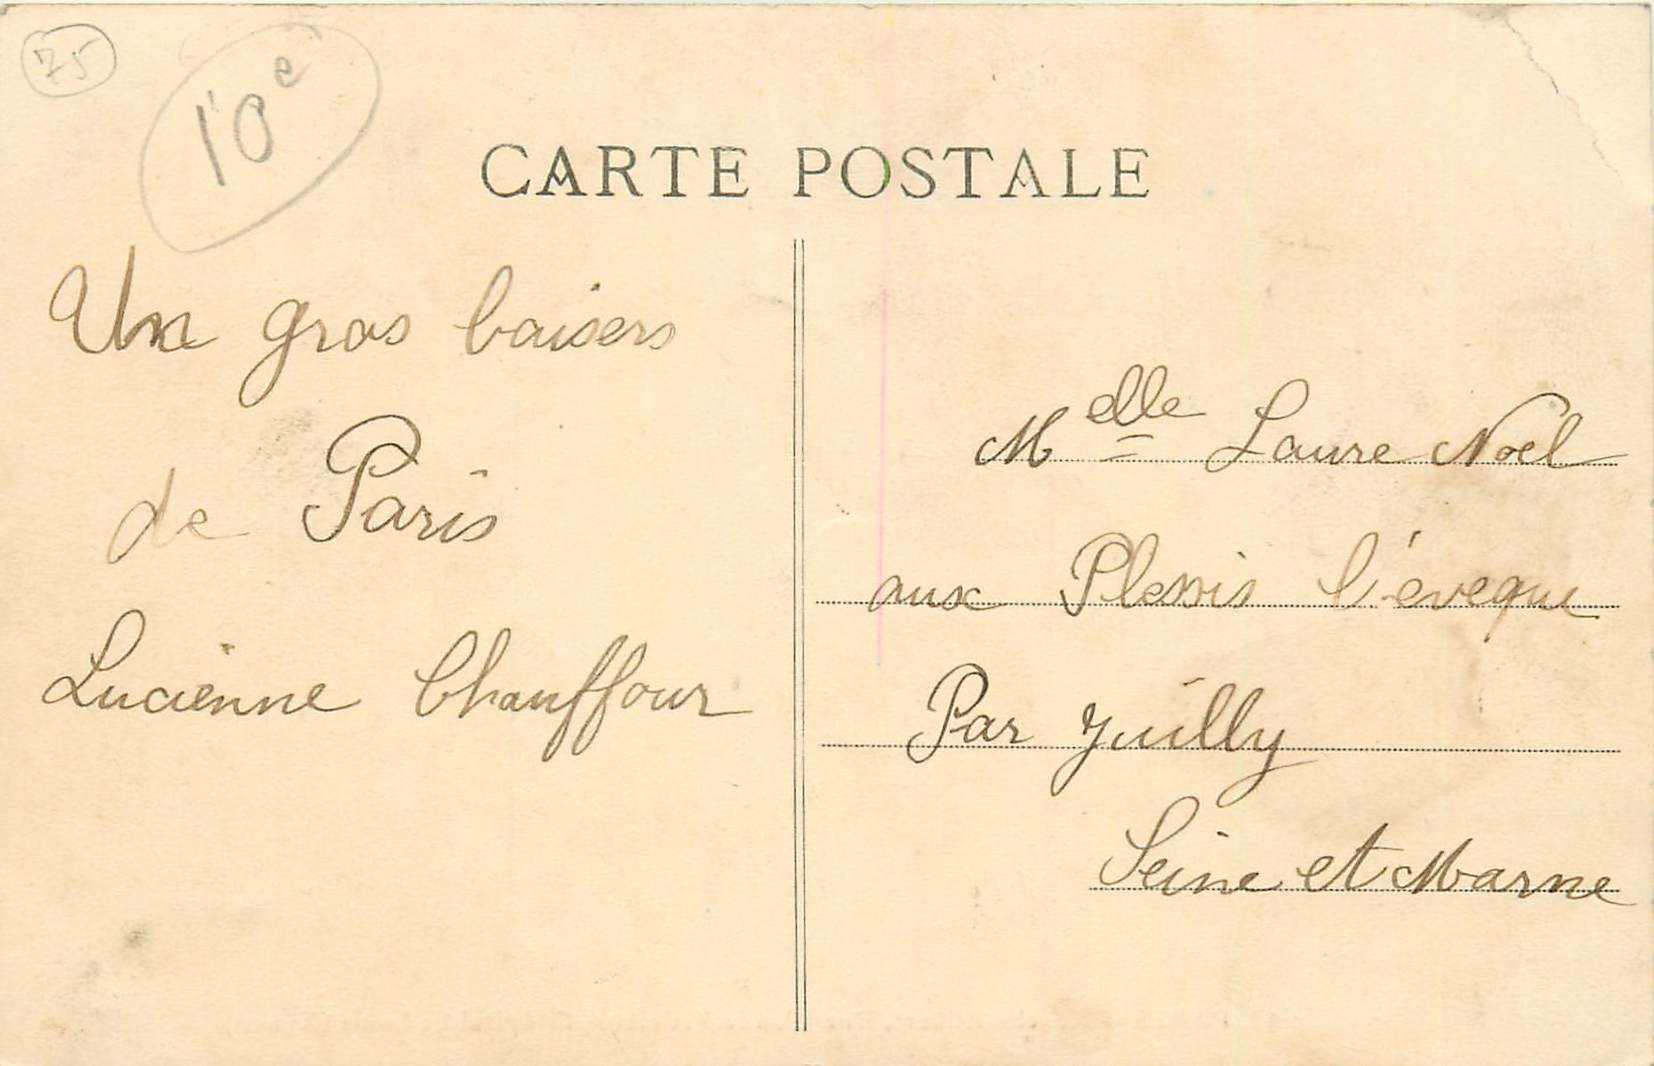 75
10e
CARTE POSTALE
Une gros baisers
de Paris
Lucienne Chauffour
Melle Laure Noël
aux Plessis l'éveque
Par Juilly
Seine et Marne